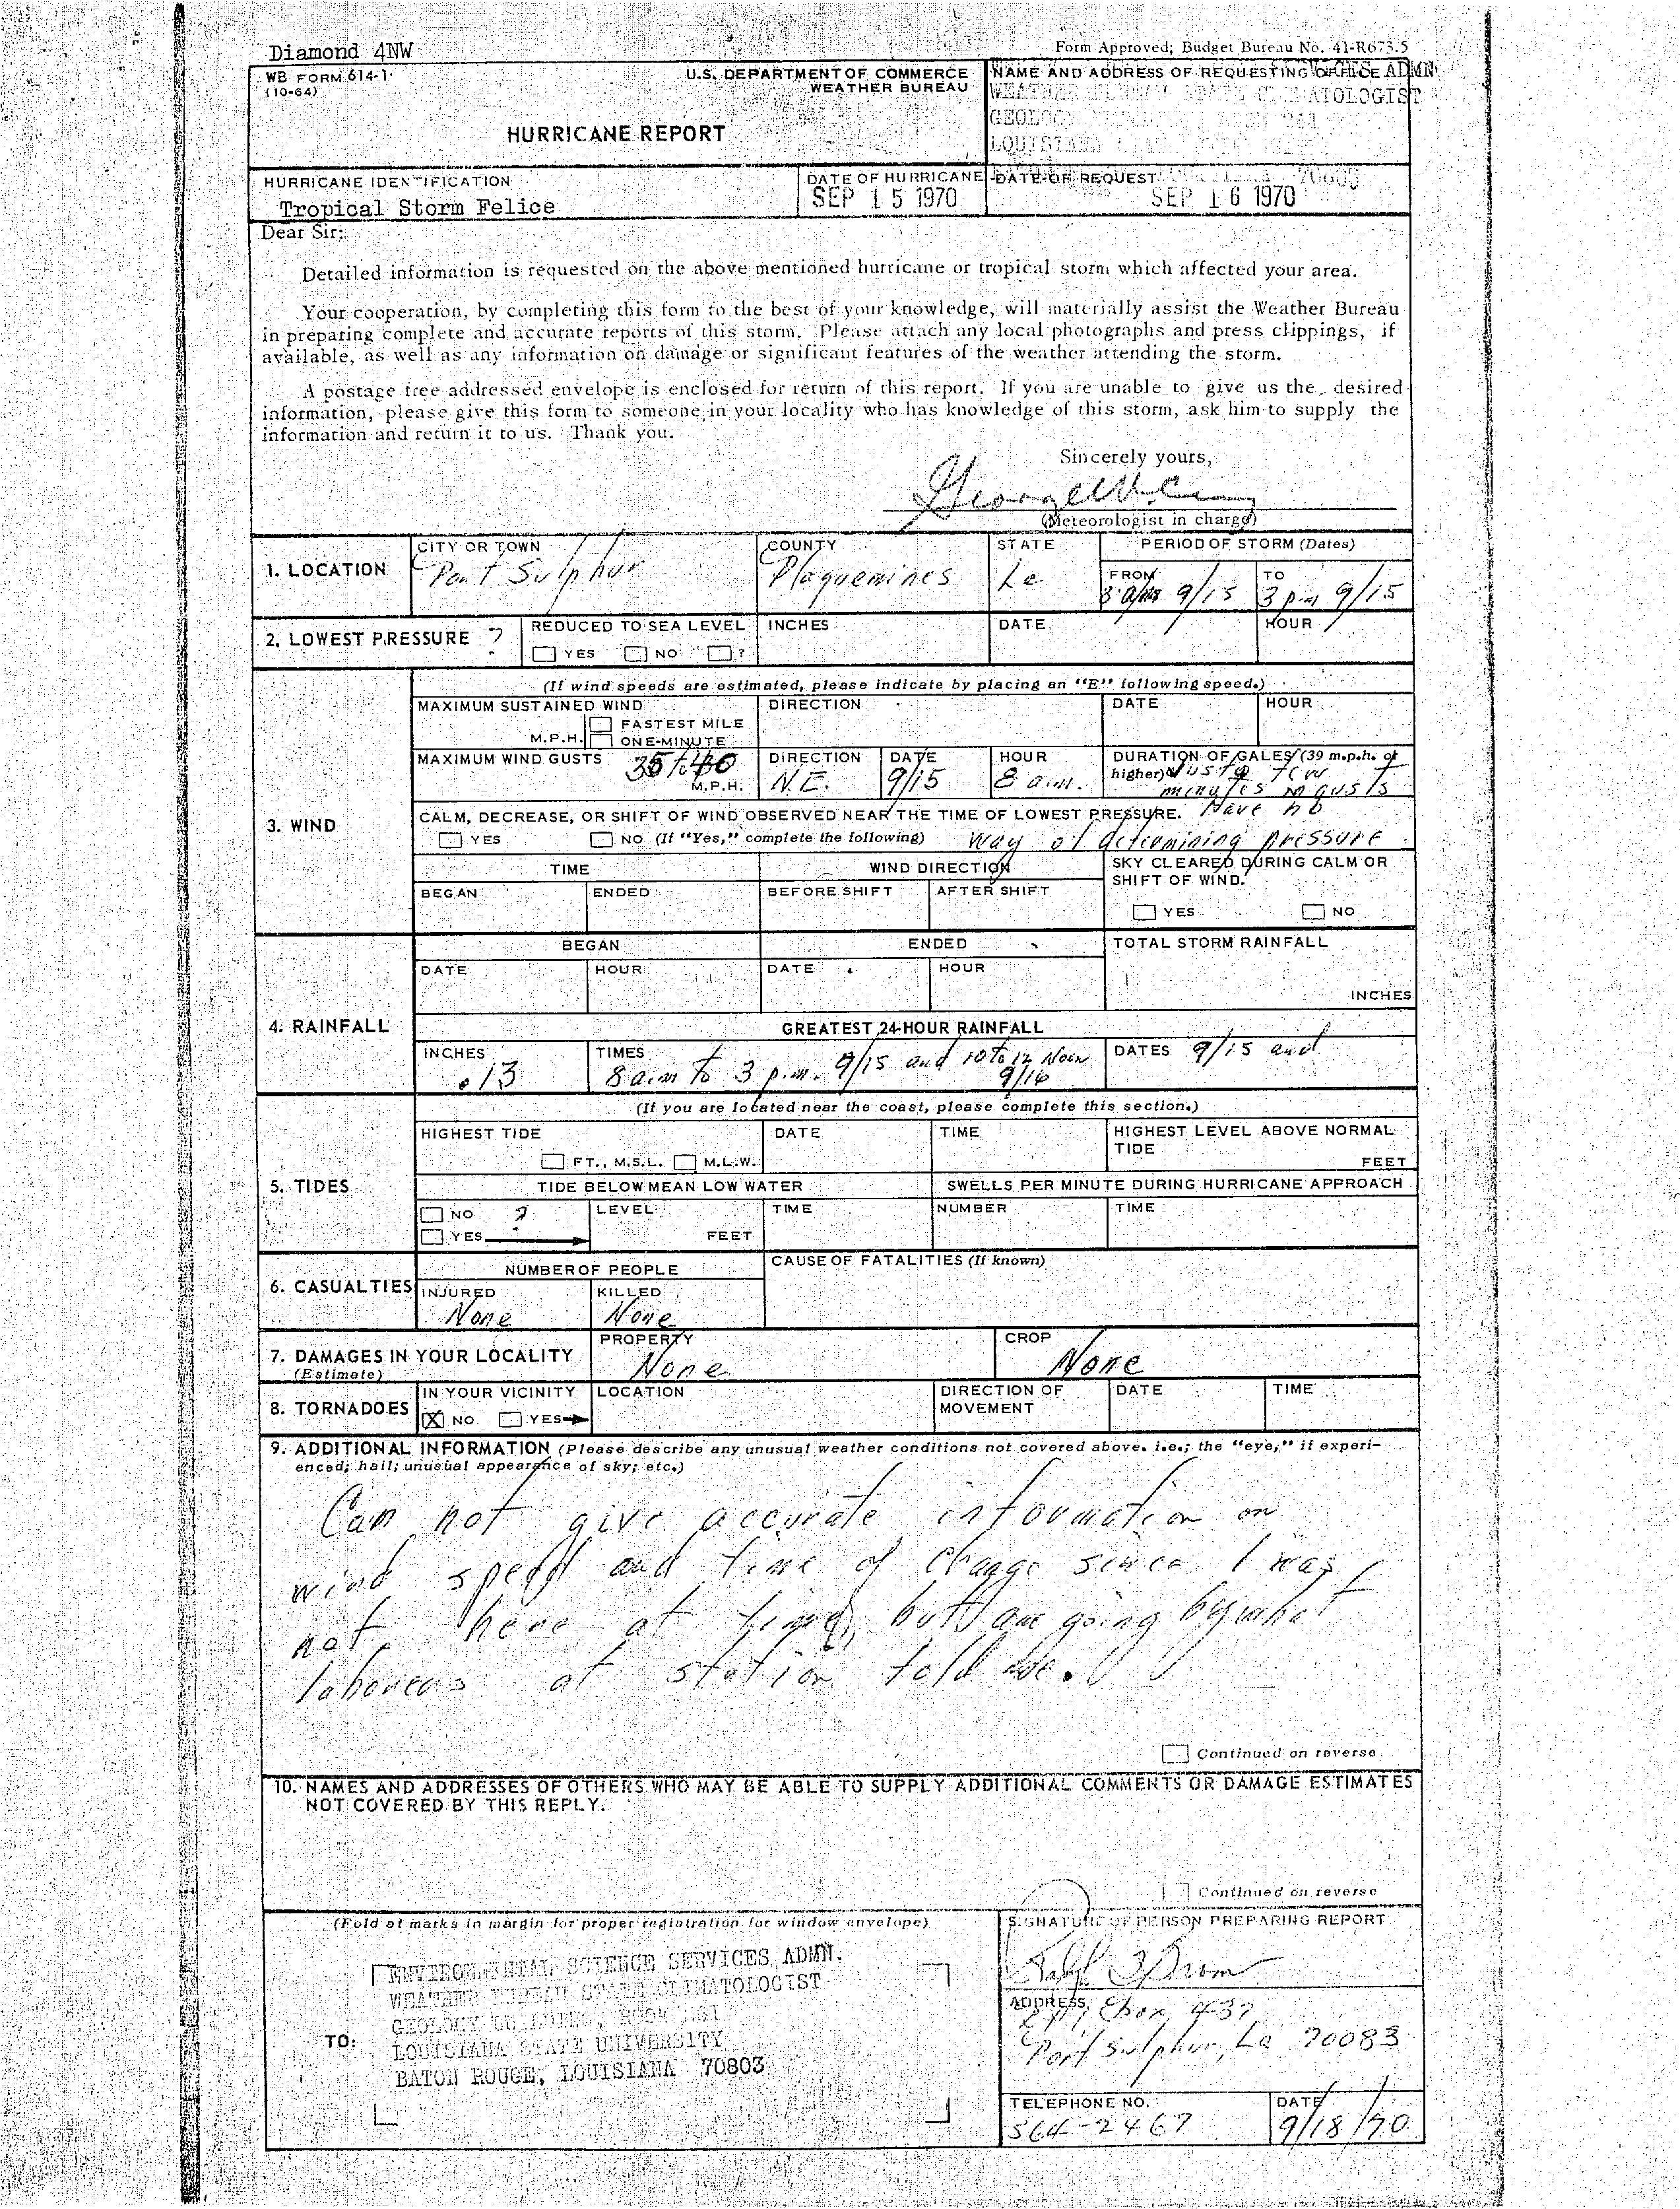 Diamond 4NW
Form Approved; Budget Bureau No. 41-R673.5
WB FORM 614-1
(10-64)
U.S. DEPARTMENT OF COMMERCE
WEATHER BUREAU
HURRICANE REPORT
NAME AND ADDRESS OF REQUESTING OFFICE ADMN
WEATHER STATE CLIMATOLOGIST
GEOLOGY
LOUISIANA
HURRICANE IDENTIFICATION
Tropical Storm Felice
DATE OF HURRICANE
SEP 15 1970
DATE OF REQUEST
SEP 16 1970
Dear Sir:
Detailed information is requested on the above mentioned hurricane or tropical storm which affected your area.
Your cooperation, by completing this form to the best of your knowledge, will materially assist the Weather Bureau
in preparing complete and accurate reports of this storm. Please attach any local photographs and press clippings, if
available, as well as any information on damage or significant features of the weather attending the storm.
A postage free addressed envelope is enclosed for return of this report. If you are unable to give us the desired
information, please give this form to someone in your locality who has knowledge of this storm, ask him to supply the
information and return it to us. Thank you.
Sincerely yours,
(Meteorologist in charge)
1. LOCATION
CITY OR TOWN
Port Sulphur
COUNTY
Plaquemines
STATE
La
PERIOD OF STORM (Dates)
FROM
8 a.m 9/15
TO
3 p.m 9/15
2. LOWEST PRESSURE ?
REDUCED TO SEA LEVEL
YES NO ?
INCHES
DATE
HOUR
3. WIND
(If wind speeds are estimated, please indicate by placing an "E" following speed.)
MAXIMUM SUSTAINED WIND
M.P.H.
FASTEST MILE
ONE-MINUTE
DIRECTION
DATE
HOUR
MAXIMUM WIND GUSTS
35 to 40
M.P.H.
DIRECTION
N.E.
DATE
9/15
HOUR
8 a.m.
DURATION OF GALES (39 m.p.h. or
higher) Just a few
minutes in gusts
CALM, DECREASE, OR SHIFT OF WIND OBSERVED NEAR THE TIME OF LOWEST PRESSURE. Have no
YES NO (If "Yes," complete the following) way of determining pressure
TIME
BEGAN
ENDED
WIND DIRECTION
BEFORE SHIFT
AFTER SHIFT
SKY CLEARED DURING CALM OR
SHIFT OF WIND.
YES NO
4. RAINFALL
BEGAN
DATE
HOUR
ENDED
DATE
HOUR
TOTAL STORM RAINFALL
INCHES
GREATEST 24-HOUR RAINFALL
INCHES
.13
TIMES
8 a.m to 3 p.m. 9/15 and 10 to 12 Noon
9/16
DATES 9/15 and
5. TIDES
(If you are located near the coast, please complete this section.)
HIGHEST TIDE
FT., M.S.L. M.L.W.
DATE
TIME
HIGHEST LEVEL ABOVE NORMAL
TIDE
FEET
TIDE BELOW MEAN LOW WATER
NO ?
YES
LEVEL
FEET
TIME
SWELLS PER MINUTE DURING HURRICANE APPROACH
NUMBER
TIME
6. CASUALTIES
NUMBER OF PEOPLE
INJURED
None
KILLED
None
CAUSE OF FATALITIES (If known)
7. DAMAGES IN YOUR LOCALITY
(Estimate)
PROPERTY
None
CROP
None
8. TORNADOES
IN YOUR VICINITY
X NO YES
LOCATION
DIRECTION OF
MOVEMENT
DATE
TIME
9. ADDITIONAL INFORMATION (Please describe any unusual weather conditions not covered above. i.e.; the "eye," if experi-
enced; hail; unusual appearance of sky; etc.)
Can not give accurate information on
wind speed and time of change since I was
not here at time, but am going by what
laborers at station told me.
Continued on reverse
10. NAMES AND ADDRESSES OF OTHERS WHO MAY BE ABLE TO SUPPLY ADDITIONAL COMMENTS OR DAMAGE ESTIMATES
NOT COVERED BY THIS REPLY.
Continued on reverse
(Fold at marks in margin for proper registration for window envelope)
TO:
ENVIRONMENTAL SCIENCE SERVICES ADMN.
WEATHER BUREAU STATE CLIMATOLOGIST
GEOLOGY BUILDING, ROOM
LOUISIANA STATE UNIVERSITY
BATON ROUGE, LOUISIANA 70803
SIGNATURE OF PERSON PREPARING REPORT
ADDRESS
Box 437
Port Sulphur, La 70083
TELEPHONE NO.
564-2467
DATE
9/18/70